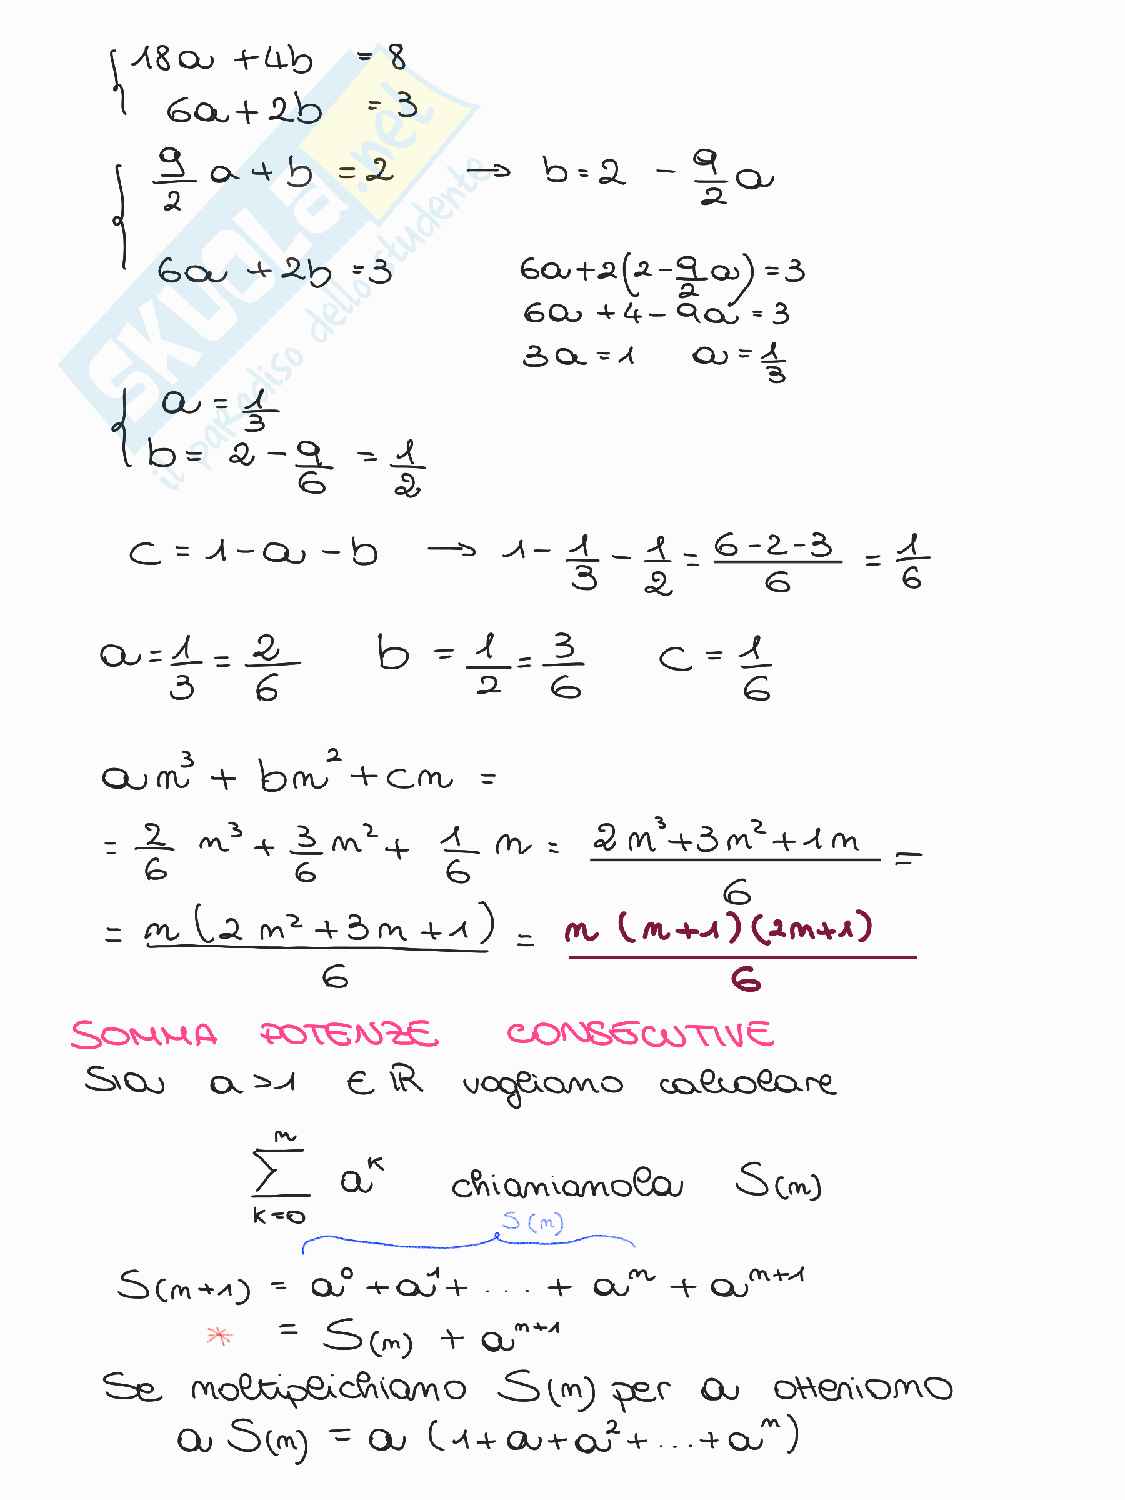 18a + 4b = 8
6a + 2b = 3
9/2 a + b = 2 → b = 2 - 9/2 a
6a + 2b = 3 6a + 2(2 - 9/2 a) = 3
6a + 4 - 9a = 3
3a = 1 a = 1/3
a = 1/3
b = 2 - 9/6 = 1/2
c = 1 - a - b → 1 - 1/3 - 1/2 = (6-2-3)/6 = 1/6
a = 1/3 = 2/6 b = 1/2 = 3/6 c = 1/6
an³ + bn² + cn =
= 2/6 n³ + 3/6 n² + 1/6 n = (2n³ + 3n² + 1n)/6 =
= n(2n² + 3n + 1)/6 = n(n+1)(2n+1)/6
SOMMA POTENZE CONSECUTIVE
Sia a > 1 ∈ ℝ vogliamo calcolare
n
∑ aᵏ chiamiamola S(n)
k=0
S(n)
S(n+1) = a⁰ + a¹ + ... + aⁿ + aⁿ⁺¹
* = S(n) + aⁿ⁺¹
Se moltiplichiamo S(n) per a otteniamo
a S(n) = a (1 + a + a² + ... + aⁿ)
SKUOLA.net
il paradiso dello studente